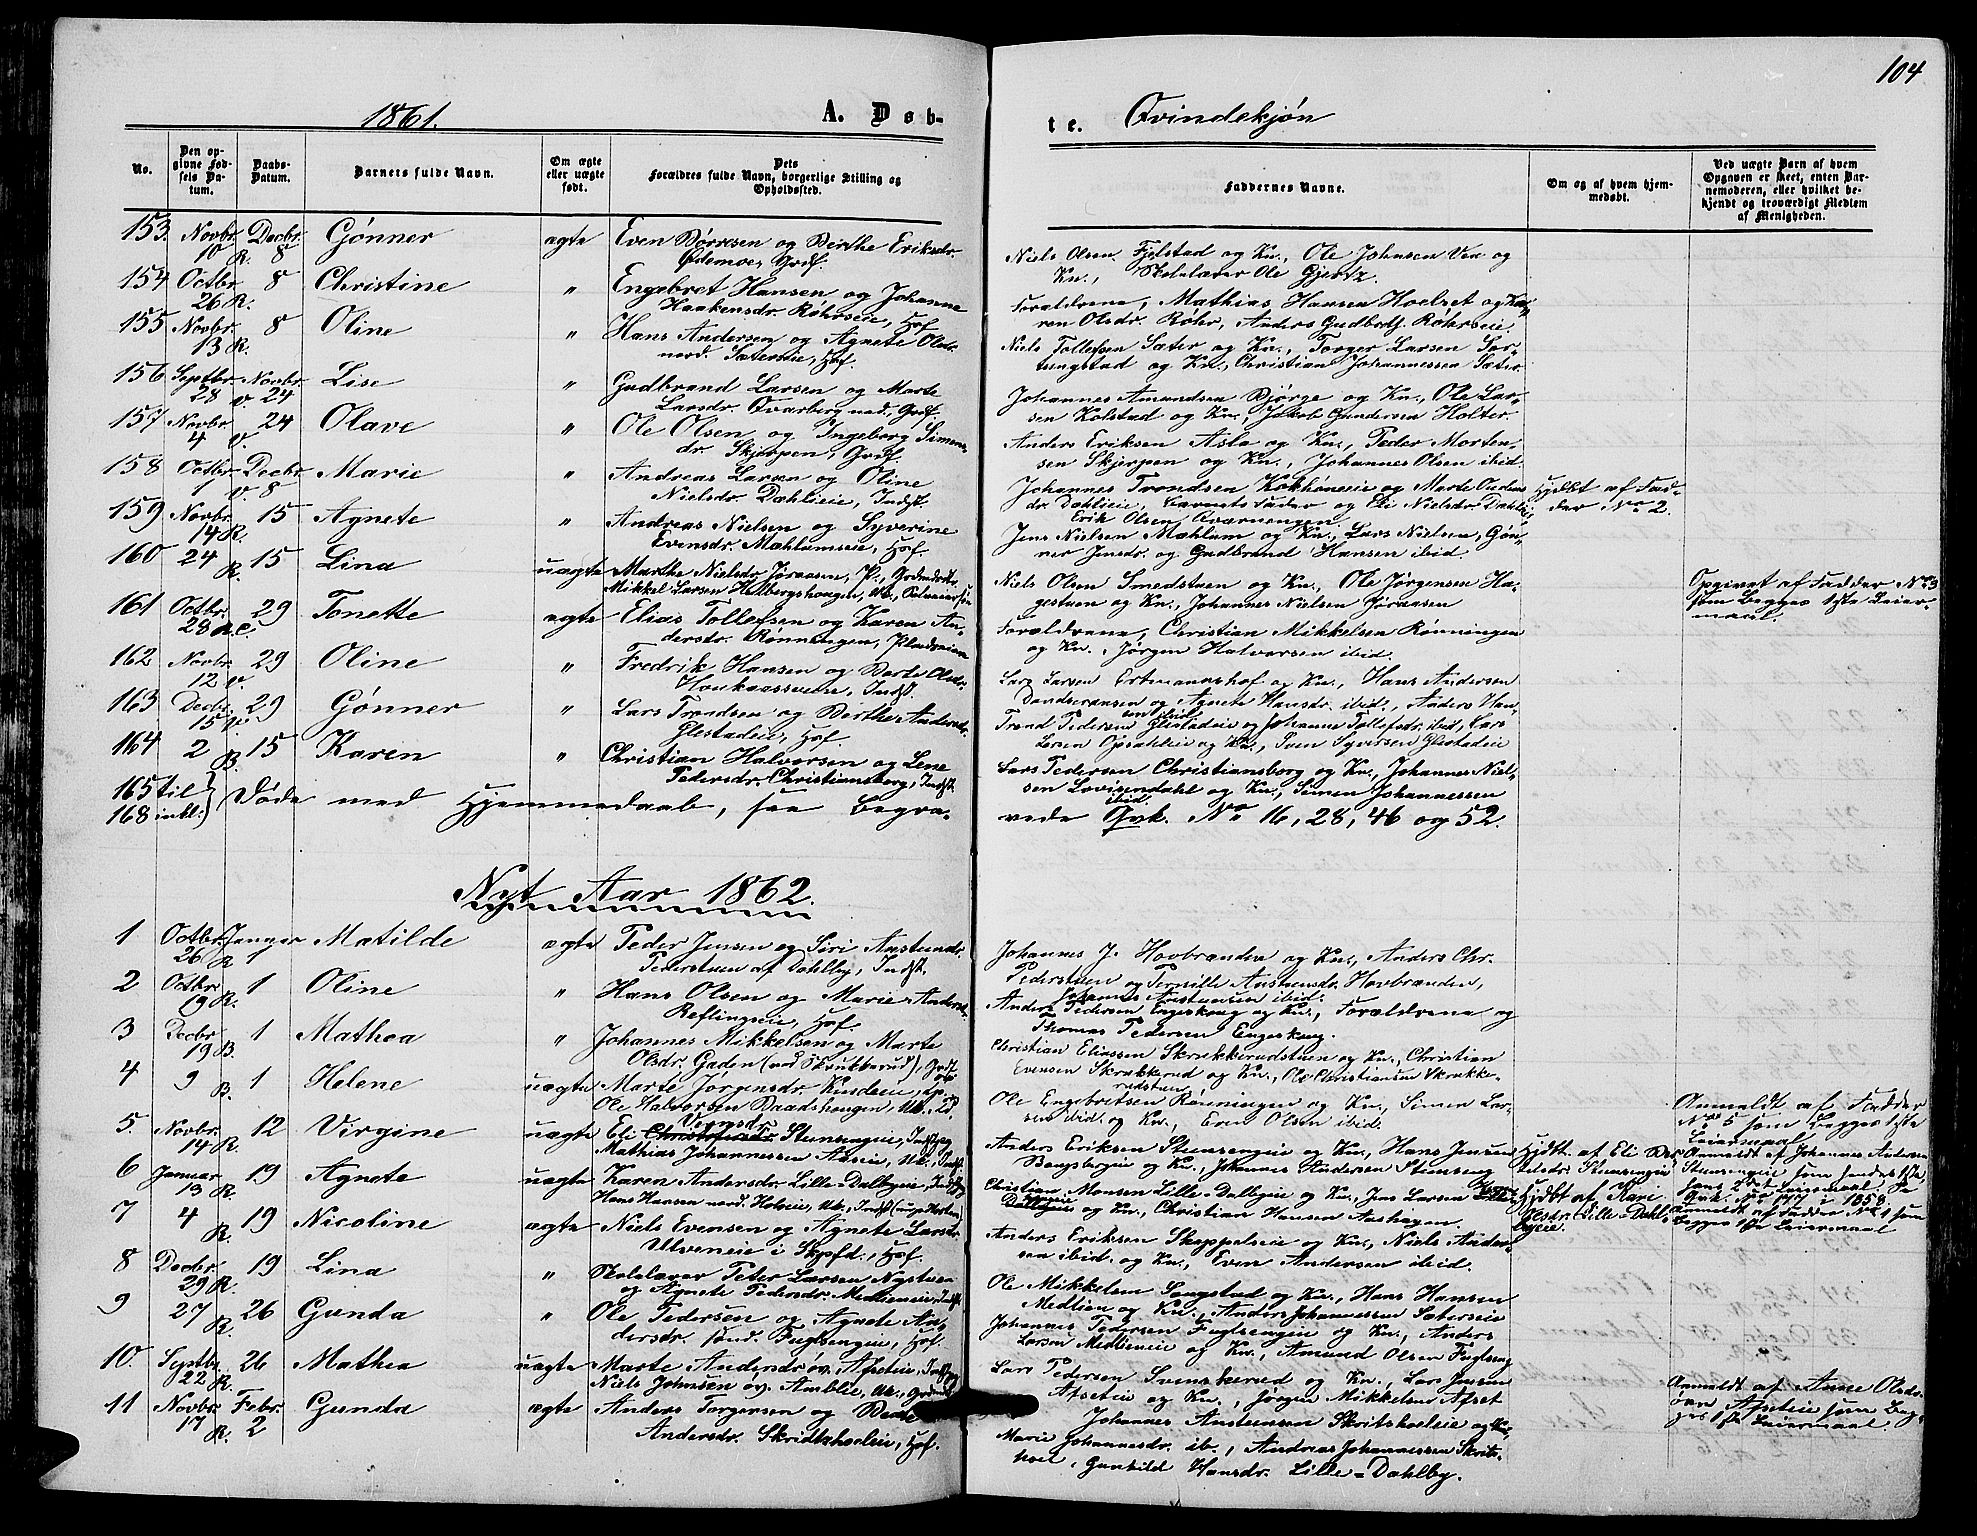 104
1861.
A. Døb-
te. Qvindekjøn
No.
Den op-
givne Fød-
sels Da-
tum.
Daabs-
Datum.
Barnets fulde Navn.
Om ægte
eller uægte
født.
Dets
Forældres fulde Navn, borgerlige Stilling og
Opholdssted.
Faddernes Navne.
Om og af hvem hjem-
medøbt.
Ved uægte Barn af hvem
Opgaven er skeet, enten Bar-
nemoderen, eller hvilket be-
kjendt og troværdigt Medlem
af Menigheden.
153. Novbr. Decbr. Gønner ægte Even Børresen og Berthe Eriksdr.
10 R. 8 Ødemoe, Grdf.
Niels Olsen Fjelstad og Kn., Ole Johnsen Ven og
Kn., Skolelærer Ole Gjertz.
154 Octbr. 8 Christine " Engebret Hansen og Johanne
26 R. Haakensdr. Røhrseie, Hof
Forældrene, Mathias Hansen Hoelset og Ka-
ren Olsdr. Røhr, Anders Gudbrds. Røhrseie.
155 Novbr. 8 Oline " Hans Andersen og Agnete Olsdr.
13 R. nord. Sætereie, Hof.
Niels Tollefsen Sæter og Kn., Torger Larsen Sør-
tungstad og Kn., Christian Johannessen Sæter
156 Septbr. Novbr. Lise " Gudbrand Larsen og Marte
28 V. 24 Larsdr. Qvarberg ned., Grdf.
Johannes Amundsen Bjørge og Kn., Ole Lar-
sen Kolstad og Kn., Jakob Gundersen Holter.
157 Novbr. 24 Olave " Ole Olsen og Ingeborg Simens
4 V. dr. Skjerpen, Grdf.
Anders Eriksen Asla og Kn., Peder Morten-
sen Skjerpen og Kn., Johannes Olsen ibid.
158 Octbr. Decbr. Marie " Andreas Larsen og Oline
1 V. 8 Nielsdr. Dahlieie, Indst.
Johannes Trondsen Kokhøneie og Marte Ouden
dr. Dahlieie, Barnets Fader og Eli Nielsdr. Dahlieie,
Erik Olsen Qværnengen.
Hjdbt af Fad-
der No 2.
159 Novbr. 15 Agnete " Andreas Nielsen og Syverine
14 R. Evensdr. Mæhlumseie, Hof.
Jens Nielsen Mæhlum og Kn., Lars Nielsen, Gøn-
ner Jensdr. og Gudbrand Hansen ibid
160 24 R. 15 Lina uægte Marthe Nielsdr. Jøraasen, P., Grdmdatr.
Mikkel Larsen Helbergshougen, Uk.,
Niels Olsen Smedstuen og Kn., Ole Jørgensen Ha-
gestuen og Kn., Johannes Nielsen Jøraasen
Opgivet af Fadder No 3
som Begges 1ste Leier-
maal.
161 Octbr. 29 Tonette ægte Elias Tollefsen og Karen An-
28 R. C. dersdr. Rønningen, Pladseiere
Forældrene, Christian Mikkelsen Rønningen
og Kn., Jørgen Halvorsen ibid.
162 Novbr. 29 Oline " Fredrik Hansen og Berte Olsdr.
12 V. Indst.
Lars Larsen Ertmannshof og Kn., Hans Andersen
og Agnete Hansdr. ibid., Anders Han-
sen ibid.
163 Decbr. 29 Gønner " Lars Trondsen og Berthe Andersdr.
15 V. Glestadeie, Hof.
Trond Pedersen Glestadeie og Johanne Tollefsdr. ibid., Lars
Larsen Opsahleie og Kn., Iver Syversen Glestadeie
164 2 B. 15 Karen " Christian Halvorsen og Lene
Pedersdr. Christiansborg, Indst.
Lars Pedersen Christiansborg og Kn., Johannes Niel-
sen Lovisendahl og Kn., Simen Johannessen
ibid.
165 til
168 inkl. } Døde med Hjemmedaab, see Begra-
vede Qvk. No 16, 28, 46 og 52.
Nyt Aar 1862.
1 Octbr. Januar Matilde ægte Peder Jensen og Siri Anstensdr.
26 R 1 Pederstuen af Dahlby, Indst.
Johannes J. Hovbrænden og Kn., Anders Chr.
Pederstuen og Pernille Anstensdr. Hovbrænden,
Johannes Anstensen ibid.
2 Octbr. 1 Oline " Hans Olsen og Marie Andersdr.
19 R. Reflingseie, Hof.
Anders Pedersen Engeskoug og Kn., Forældrene og
Thomas Pedersen Engeskoug.
3 Decbr. 1 Mathea " Johannes Mikkelsen og Marte
19 B. Olsdr. Gaden (ved Skrukkerud), Grdf.
Christian Eliassen Skrukkerudstuen og Kn., Christian
Evensen Skrukkerud og Kn., Ole Christiansen Skrukke-
rudstuen.
4 9 B. 1 Helene uægte Marte Jørgensdr. Kusleeie,
Ole Halvorsen Baadshougen, Uk.,
Ole Engebretsen Rønningen og Kn., Simen Lar-
sen ibid. og Kn., Even Olsen ibid.
Anmeldt af Fadder
No 5 som Begges 1ste
Leiermaal
5. Novbr. 12 Virgine uægte Eli Christofersdr. Stensengeie,
14 R. Mathias Johannessen Aaseie, Uk., Indst.
Anders Eriksen Stensengeie og Kn., Hans Jensen
Bangsbergeie og Kn., Johannes Andersen Stenseng
Hjdbt. af Eli
Stensengeie
Anmeldt af Johannes Andersen
Stensengeie som hendes 1ste,
hans 2det Leiermaal. Se
Qvk. No 177 i 1858.
6 Januar 19 Agnete uægte Karen Andersdr. Lille-Dalbyeie, Indst.
13 R. Hans Hansen nord. Holseie, Uk., Indst
Christian Monsen Lille-Dalbyeie og Kn., Jens Larsen
Dalbyeie og Kn., Christian Hansen Aashagen.
Hjdbt af Kari
Olsdr. Lille-Dahl-
byeie.
Anmeldt af Fadder No 1 som
Begges 1ste Leiermaal
7 4 R. 19 Nicoline ægte Niels Evensen og Agnete Larsdr.
Ulveneie i Skpfd., Hof.
Anders Eriksen Skeppelseie og Kn., Niels Ander-
sen ibid. og Kn., Even Andersen ibid.
8 Decbr. 19 Lina " Skolelærer Peter Larsen Nystuen
29 R. og Agnete Pedersdr. Medlieneie, Indst
Ole Mikkelsen Longstad og Kn., Hans Hansen
Medlien og Kn., Anders Johannessen Sætereie
9 27 R. 26 Gunda " Ole Pedersen og Agnete An-
dersdr. sønd. Fuglsengeie, Hof.
Johannes Pedersen Fuglsengeie og Kn., Anders
Larsen Medlieneie og Kn., Amund Olsen Fuglseng
10. Septbr. 26 Mathea uægte Marte Andersdr. øv. Afseteie,
22 R. Niels Johnsen øv. Amblie, Uk.,
Lars Pedersen Svenskerud og Kn., Lars Jensen
Afseteie og Kn., Jørgen Mikkelsen Afset
Anmeldt af Anne Olsdr.
øvre Afseteie som Beg-
ges 1ste Leiermaal.
11 Novbr. Febr. Gunda ægte Anders Torgersen og Berte
17 R. 2 Andersdr. Skridtshoeleie, Hof.
Johannes Anstensen Skritshoeleie og Kn.,
Marie Johannesdr. ib., Andreas Johannessen Skrits-
hoel, Gunhild Hansdr. Lille-Dahlby.